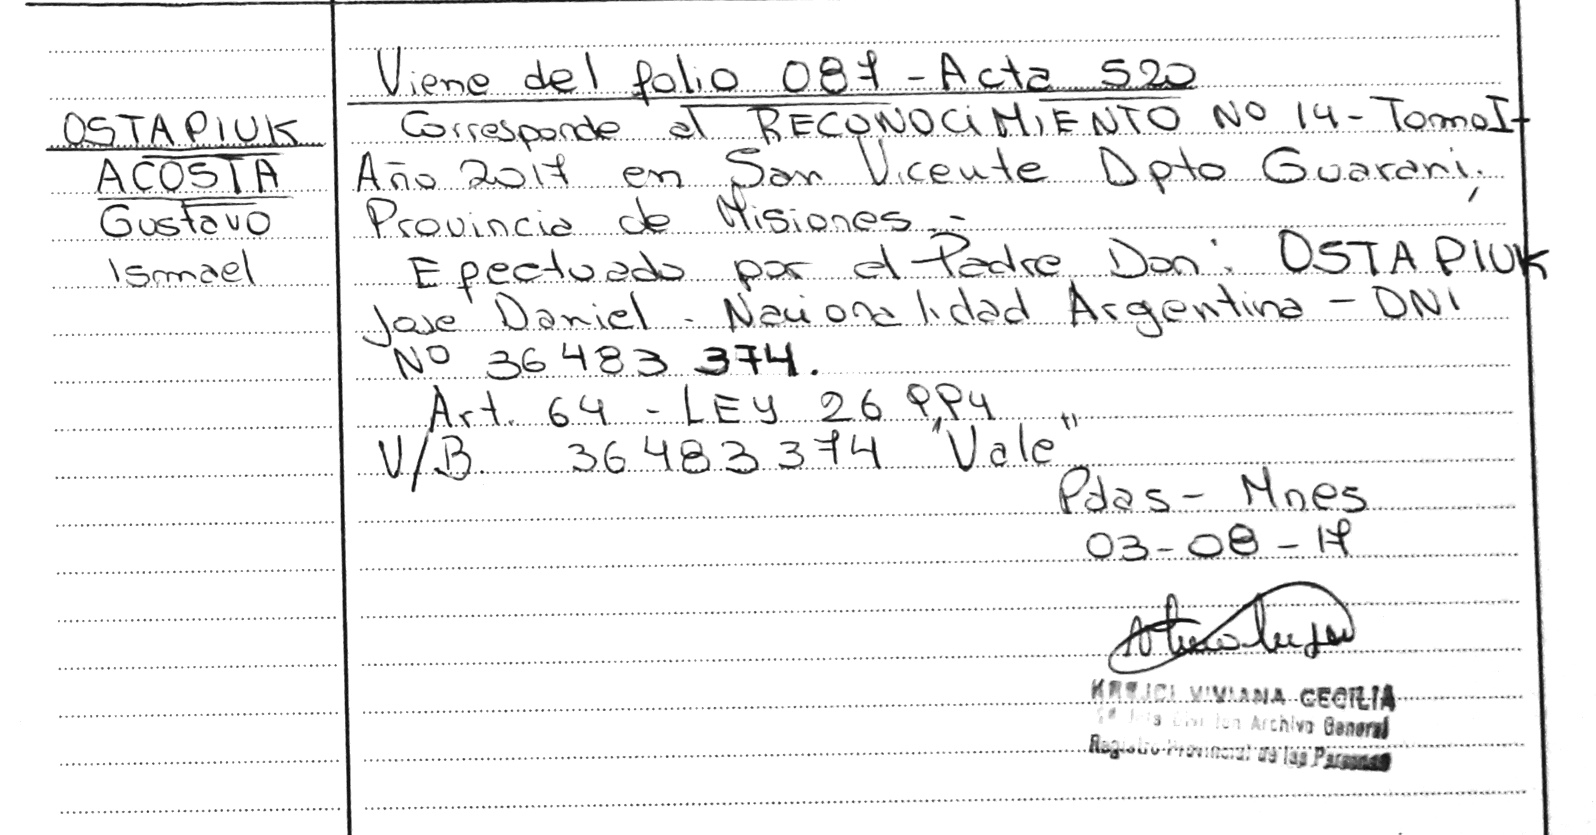 Viene del folio 087 - Acta 520
OSTAPIUK
ACOSTA
Gustavo
Ismael
Corresponde al RECONOCIMIENTO No 14 - Tomo I -
Año 2017 en San Vicente Dpto Guarani,
Provincia de Misiones.-
Efectuado por el Padre Don: OSTAPIUK
Jose Daniel. Nacionalidad Argentina - DNI
No 36 483 374.
Art. 64 - LEY 26 994
V/B. 36 483 374 "Vale"
Pdas - Mnes
03-08-17
VIVIANA CECILIA
Archivo General
Registro Provincial de las Personas